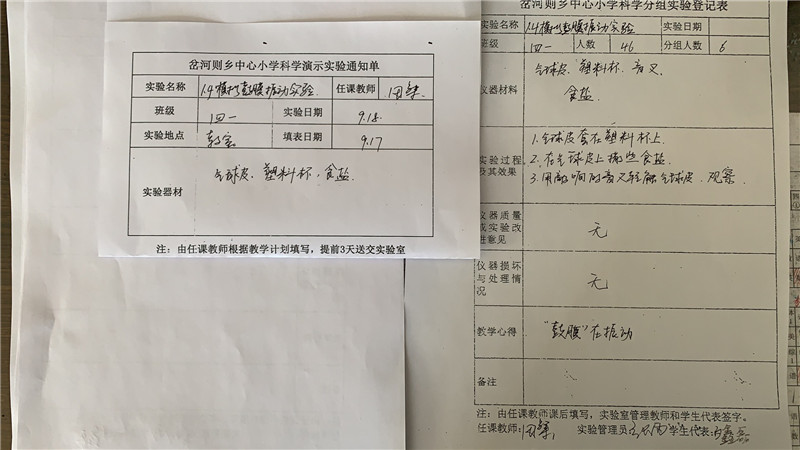 岔河则乡中心小学科学演示实验通知单
实验名称 1.4模拟鼓膜振动实验 任课教师
班级 四一 实验日期 9.18.
实验地点 教室 填表日期 9.17
实验器材 气球皮、塑料杯、食盐
注：由任课教师根据教学计划填写，提前3天送交实验室
岔河则乡中心小学科学分组实验登记表
实验名称 1.4模拟鼓膜振动实验 实验日期
班级 四一 人数 46 分组人数 6
仪器材料 气球皮、塑料杯、音叉、
食盐
实验过程及其效果 1.气球皮套在塑料杯上.
2.在气球皮上撒些食盐.
3.用敲响的音叉轻触气球皮. 观察.
仪器质量
或实验改
进意见
无
仪器损坏
与处理情
况
无
教学心得 "鼓膜"在振动
备注
注：由任课教师课后填写，实验室管理教师和学生代表签字。
任课教师： 实验管理员 学生代表：